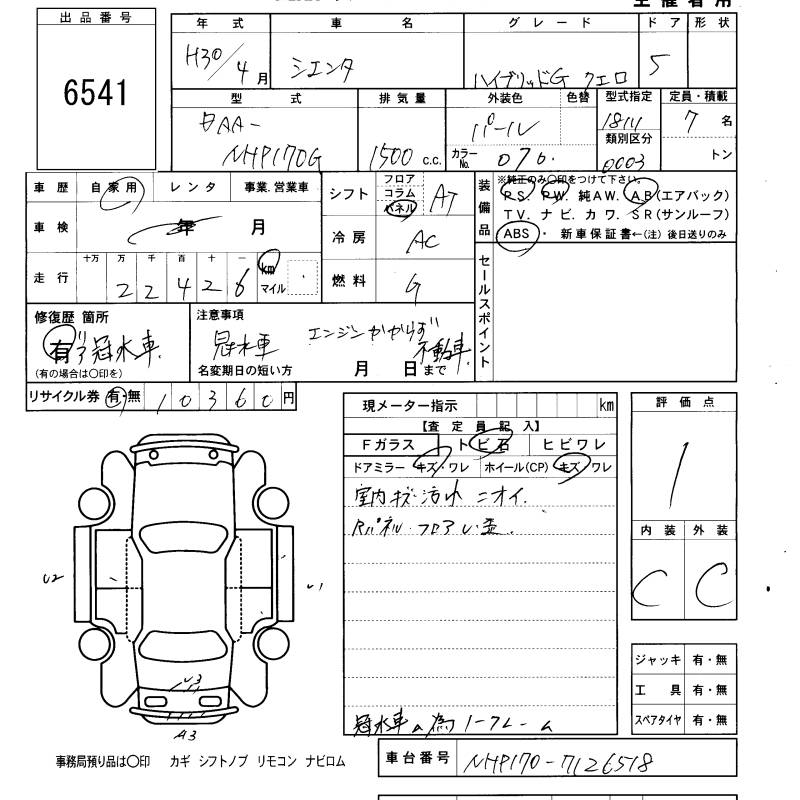 出品番号
6541
年式 車名 グレード ドア 形状
H30/4月 シエンタ ハイブリッドG クエロ 5
型式 排気量 外装色 色替 型式指定 定員・積載
DAA-
NHP170G 1500 c.c. パール 18111 7名
類別区分
カラーNo. 070. 0003 トン
車歴 自家用 レンタ 事業.営業車
車検 年 月
走行 十万 万 千 百 十 一 km マイル
22426
シフト フロア コラム パネル AT
冷房 AC
燃料 G
装備品 ※純正のみ〇印をつけて下さい。
P.S. P.W. 純AW. A.B(エアバック)
T.V. ナビ. カワ. SR(サンルーフ)
ABS・ 新車保証書←(注) 後日送りのみ
セールスポイント
修復歴 箇所
有 冠水車.
(有の場合は〇印を)
注意事項
冠水車 エンジンかからず 不動車.
名変期日の短い方 月 日まで
リサイクル券 有・無 10360円
現メーター指示 km
【査定員記入】
Fガラス トビ石 ヒビワレ
ドアミラー キズ・ワレ ホイール(CP) キズ・ワレ
室内キズ・汚れ ニオイ.
Rパネル・フロアし歪.
冠水車の為ノークレーム
評価点
1
内装 外装
C C
U2
U1
U3
A3
ジャッキ 有・無
工具 有・無
スペアタイヤ 有・無
事務局預り品は〇印 カギ シフトノブ リモコン ナビロム
車台番号 NHP170-7126518